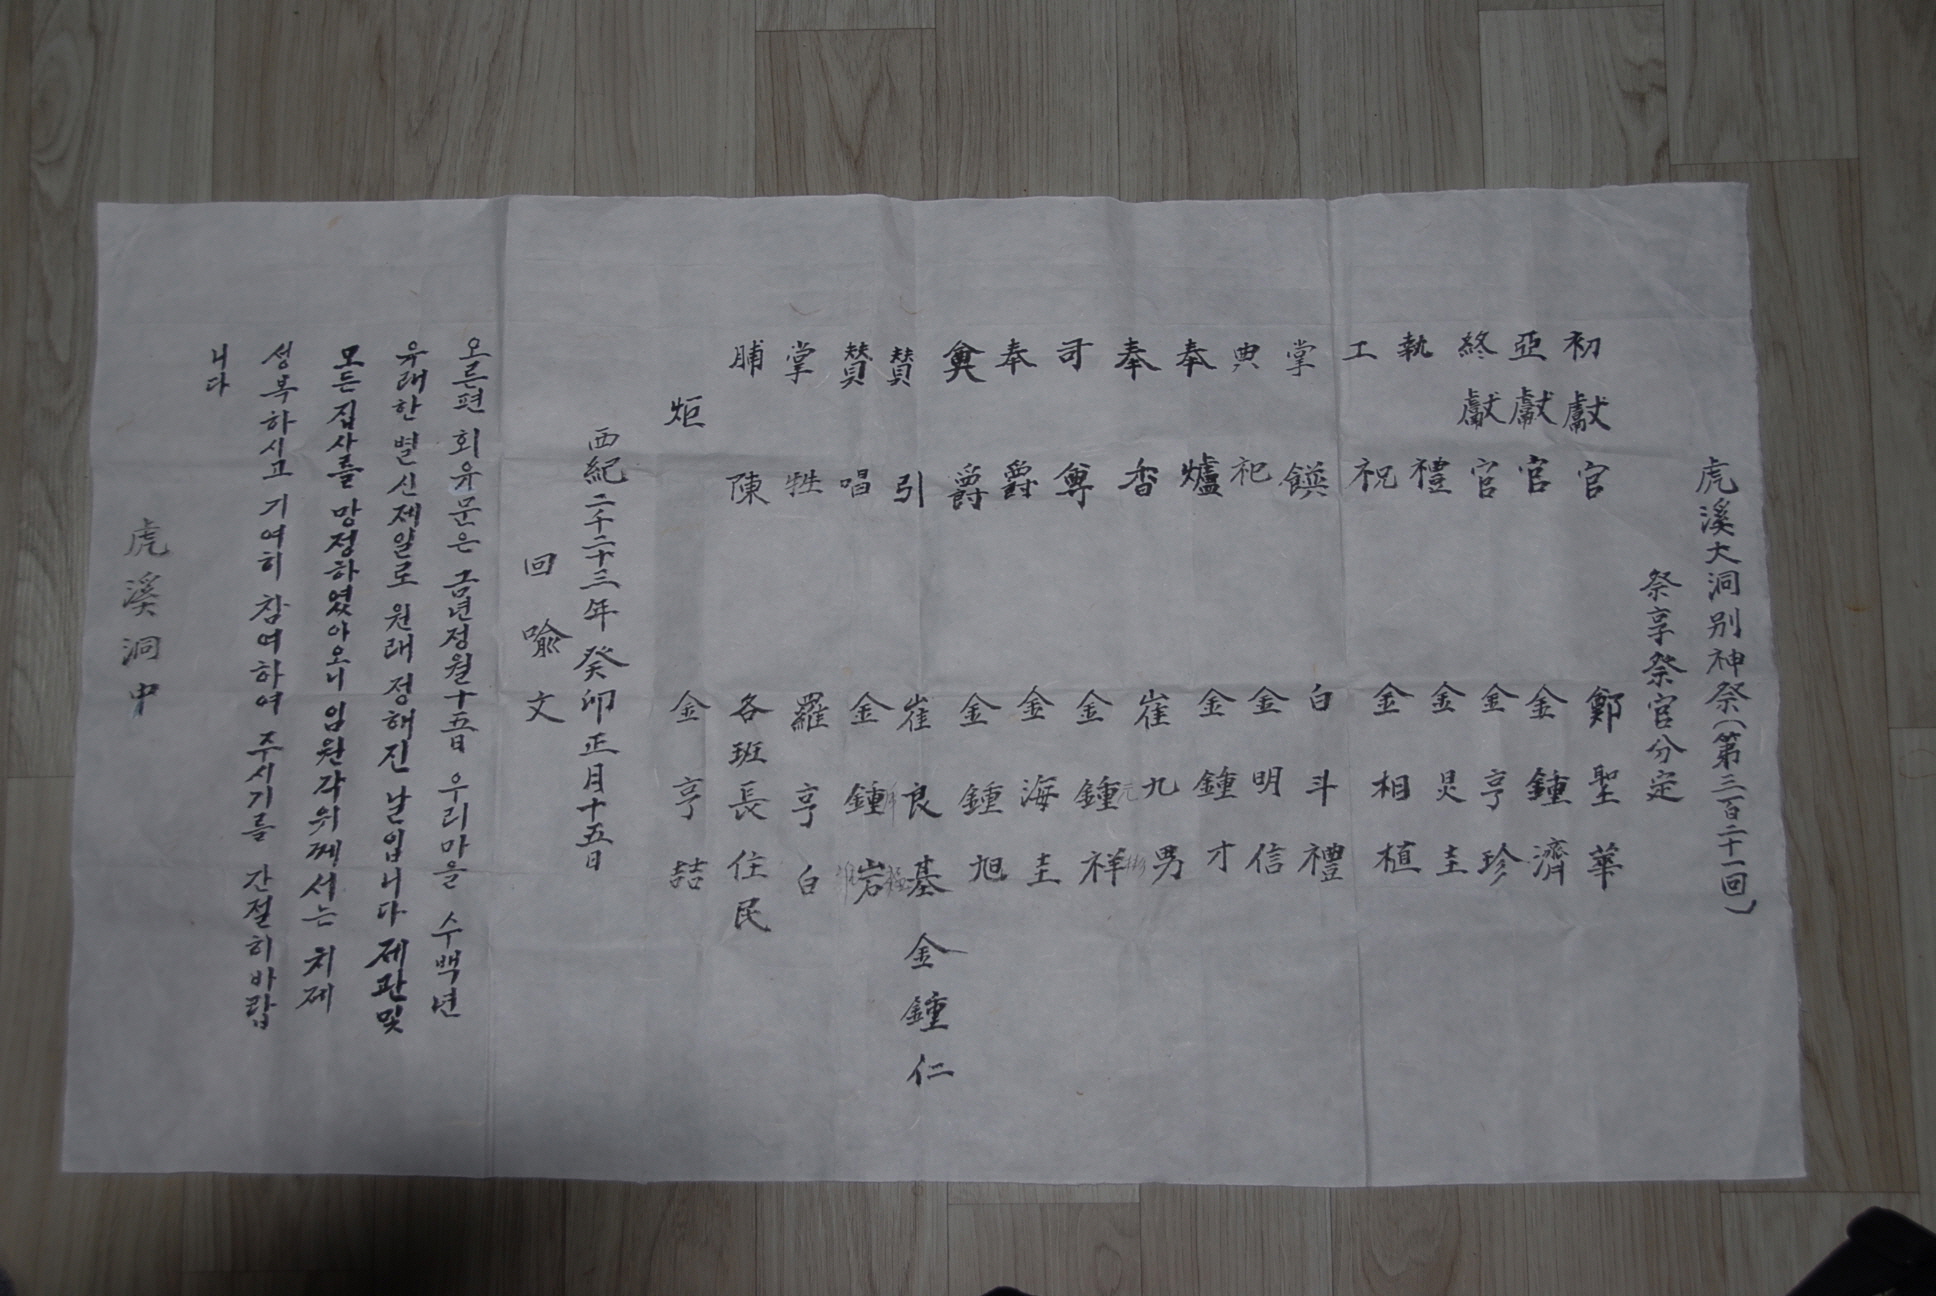 虎溪大洞别神祭(第三百二十一回)
祭享祭官分定
初獻官 鄭聖華
亞獻官 金鍾濟
終獻官 金亨珍
執禮 金炅圭
工祝 金相植
掌饌 白斗禮
典祀 金明信
奉爐 金鍾才
奉香 崔九男
司尊 金鍾祥
奉爵 金海圭
奠爵 金鍾旭
贊引 崔良基 金鍾仁
贊唱 金鍾岩
掌牲 羅亨白
脯陳 各班長住民
炬 金亨喆
西紀二千二十三年癸卯正月十五日
回喩文
오른편 회유문은 금년정월十五日 우리마을 수백년
유래한 별신제일로 원래 정해진 날입니다 제관및
모든집사를 망정하였아오니 임원각위께서는 치제
성복하시고 기여히 참여하여 주시기를 간절히바랍
니다
虎溪洞中